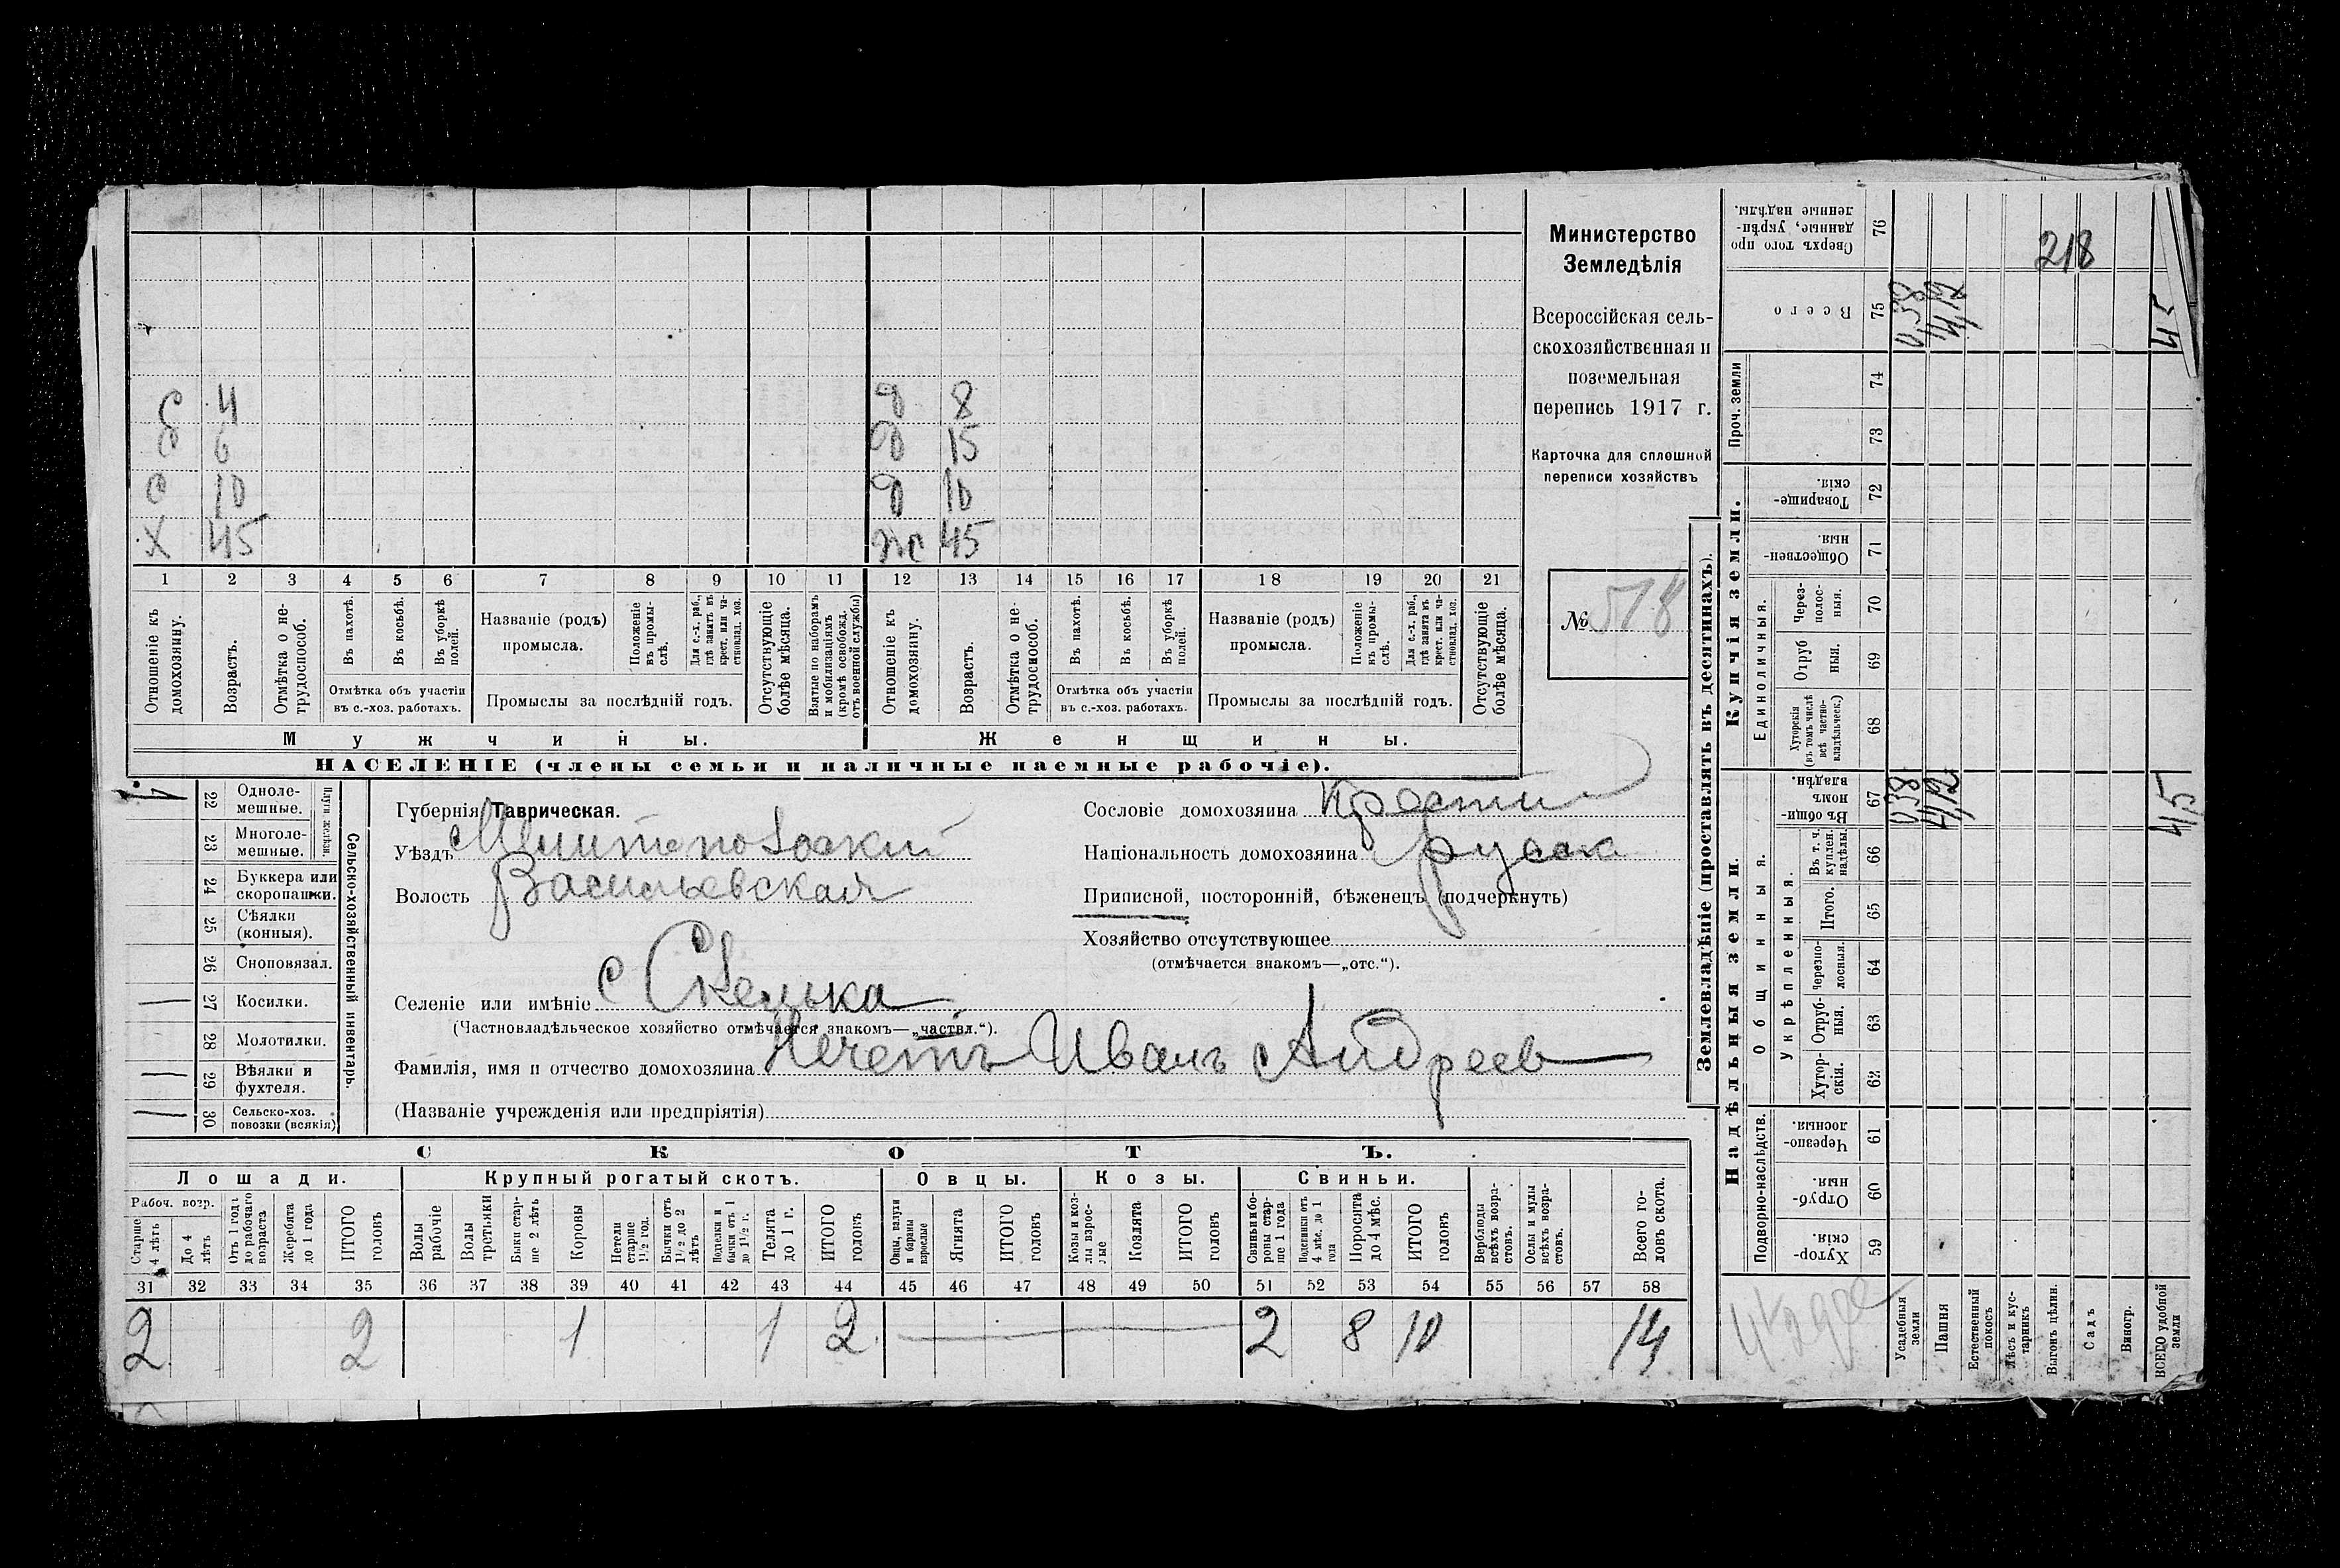 218
Министерство
Земледѣлія
Всероссійская сель-
скохозяйственная и
поземельная
перепись 1917 г.
Карточка для сплошной
переписи хозяйствъ
№ 518
с 4 д 8
с 6 д 15
с 10 д 10
х 45 ж 45
1 2 3 4 5 6 7 8 9 10 11 12 13 14 15 16 17 18 19 20 21
Отношеніе къ домохозяину.
Возрастъ.
Отмѣтка о не-трудоспособ.
Въ пахотѣ.
Въ косьбѣ.
Въ уборкѣ полей.
Отмѣтка объ участіи
въ с.-хоз. работахъ.
Названіе (родъ)
промысла.
Положеніе въ промы-слѣ.
Для с.-х. раб., гдѣ занятъ въ крест. или ча-стновлад. хоз.
Промыслы за послѣдній годъ.
Отсутствующіе болѣе мѣсяца.
Взятые по наборамъ и мобилизаціямъ (кромѣ освобожд. отъ военной службы)
Отношеніе къ домохозяину.
Возрастъ.
Отмѣтка о не-трудоспособ.
Въ пахотѣ.
Въ косьбѣ.
Въ уборкѣ полей.
Отмѣтка объ участіи
въ с.-хоз. работахъ.
Названіе (родъ)
промысла.
Положеніе въ промы-слѣ.
Для с.-х. раб., гдѣ занята въ крест. или ча-стновлад. хоз.
Промыслы за послѣдній годъ.
Отсутствующіе болѣе мѣсяца.
Мужчины. Женщины.
НАСЕЛЕНІЕ (члены семьи и наличные наемные рабочіе).
Сельско-хозяйственный инвентарь
Плуги желѣзн.
1 22 Одноле-мешные.
23 Многоле-мешные.
24 Буккера или скоропашки.
25 Сѣялки (конныя).
26 Сноповязал.
27 Косилки.
28 Молотилки.
29 Вѣялки и фухтеля.
30 Сельско-хоз. повозки (всякія)
Губернія Таврическая.
Уѣздъ Мелитопольский
Волость Васильевская
Селеніе или имѣніе с Скелька
(Частновладѣльческое хозяйство отмѣчается знакомъ—„частвл.“).
Фамилія, имя и отчество домохозяина Нечетъ Иванъ Андреев
(Названіе учрежденія или предпріятія)
Сословіе домохозяина крести
Національность домохозяина русск
Приписной, посторонній, бѣженецъ (подчеркнуть)
Хозяйство отсутствующее
(отмѣчается знакомъ—„отс.“).
СКОТЪ.
Лошади. Крупный рогатый скотъ. Овцы. Козы. Свиньи.
Рабоч. возр.
Старше 4 лѣтъ
До 4 лѣтъ
Отъ 1 года до рабочаго возраста
Жеребята до 1 года
ИТОГО головъ
Волы рабочіе
Волы третьяки
Быки стар-ше 2 лѣтъ
Коровы
Нетели старше 1½ год.
Бычки отъ 1½ до 2 лѣтъ
Подтелки и бычки отъ 1 до 1½ г.
Телята до 1 г.
ИТОГО головъ
Овцы, валухи и бараны взрослые
Ягнята
ИТОГО головъ
Козы и коз-лы взрос-лые
Козлята
ИТОГО головъ
Свиньи и бо-ровы стар-ше 1 года
Подсвинки отъ 4 мѣс. до 1 года
Поросята до 4 мѣс.
ИТОГО головъ
Верблюды всѣхъ возра-стовъ.
Ослы и мулы всѣхъ возра-стовъ.
Всего го-ловъ скота.
31 32 33 34 35 36 37 38 39 40 41 42 43 44 45 46 47 48 49 50 51 52 53 54 55 56 57 58
2 2 1 1 2 2 8 10 14
Землевладѣніе (проставлять въ десятинахъ).
Купчія земли.
Надѣльныя земли.
Сверхъ того про данные, укрѣп-ленные надѣлы. 76
Всего 75 0,38 4,12 45
Проч. земли 74
73
Товарище-скія. 72
Обществен-ныя. 71
Единоличныя.
Через-полос-ныя. 70
Отруб ныя. 69
Хуторскія (въ томъ числѣ всѣ частно-владѣльческ.) 68
Общинныя.
Въ общи-номъ владѣн. 67 0,38 4,12 4,5
Укрѣпленныя.
Въ т. ч. куплен. надѣлы. 66
Итого. 65
Черезпо-лосныя. 64
Отруб-ныя. 63
Хутор-скія. 62
Подворно-наслѣдств.
Черезпо-лосныя. 61
Отруб-ныя. 60
Хутор-скія. 59
Усадебныя земли
Пашня
Естественный покосъ
Лѣсъ и кус-тарникъ
Выгонъ цѣлин.
Садъ
Виногр.
ВСЕГО удобной земли